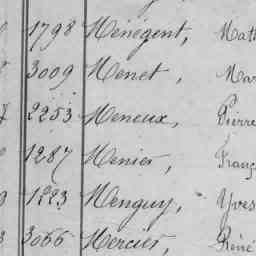 1798 Ménégent, Math
3009 Menet, Mar
2253 Meneux, Pierre
1287 Menier, Franç
1223 Menguy, Yves
3066 Mercier, René